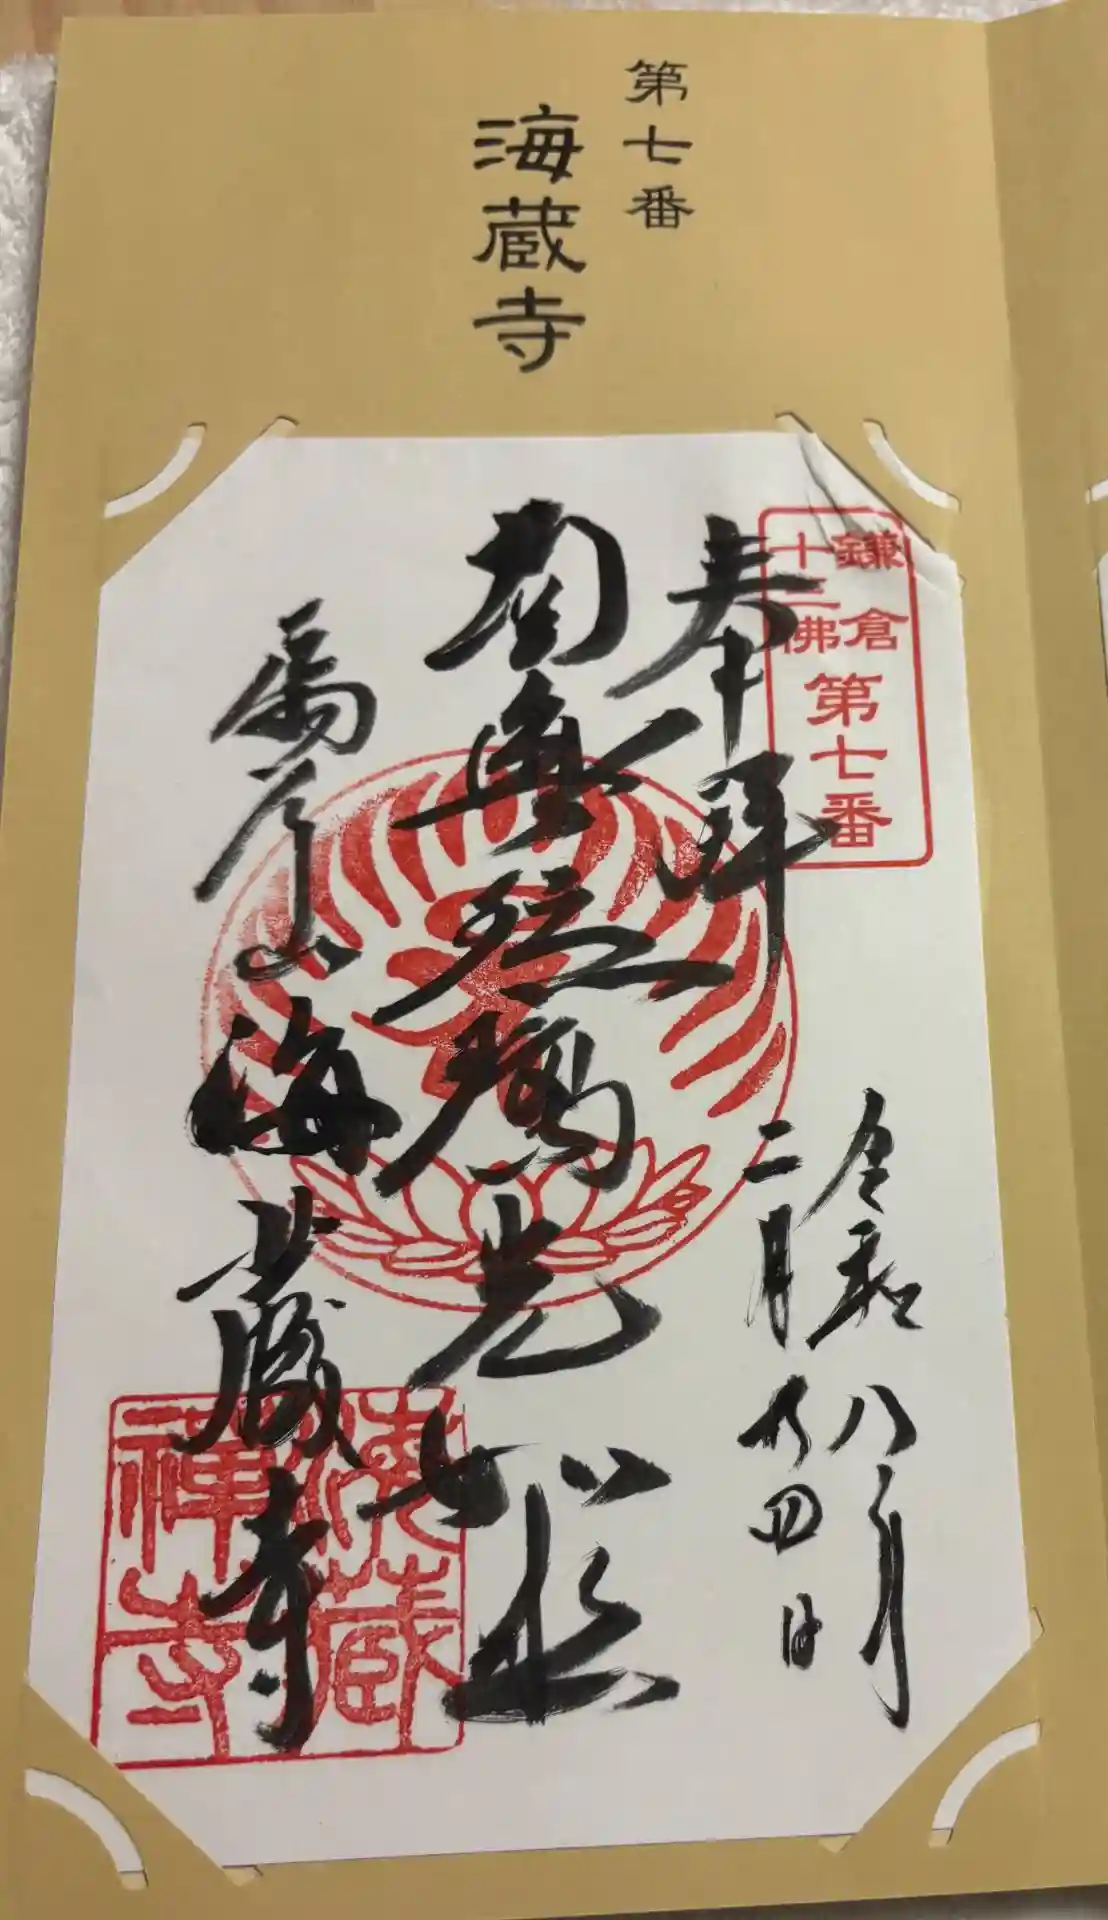 第七番
海蔵寺
鎌倉
十三佛
第七番
奉拝
令和八年
二月廿四日
南無瑠璃光如来
扇谷山海蔵寺
海蔵
禅寺